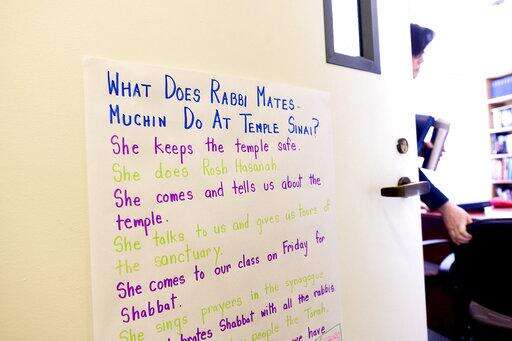 WHAT DOES RABBI MATES-
MUCHIN DO AT TEMPLE SINAI?
She keeps the temple safe.
She does Rosh Hasanah
She comes and tells us about the
temple.
She talks to us and gives us tours of
the sanctuary.
She comes to our class on Friday for
Shabbat.
She sings prayers in the synagogue
brates Shabbat with all the rabbis
people the Torah.
we have